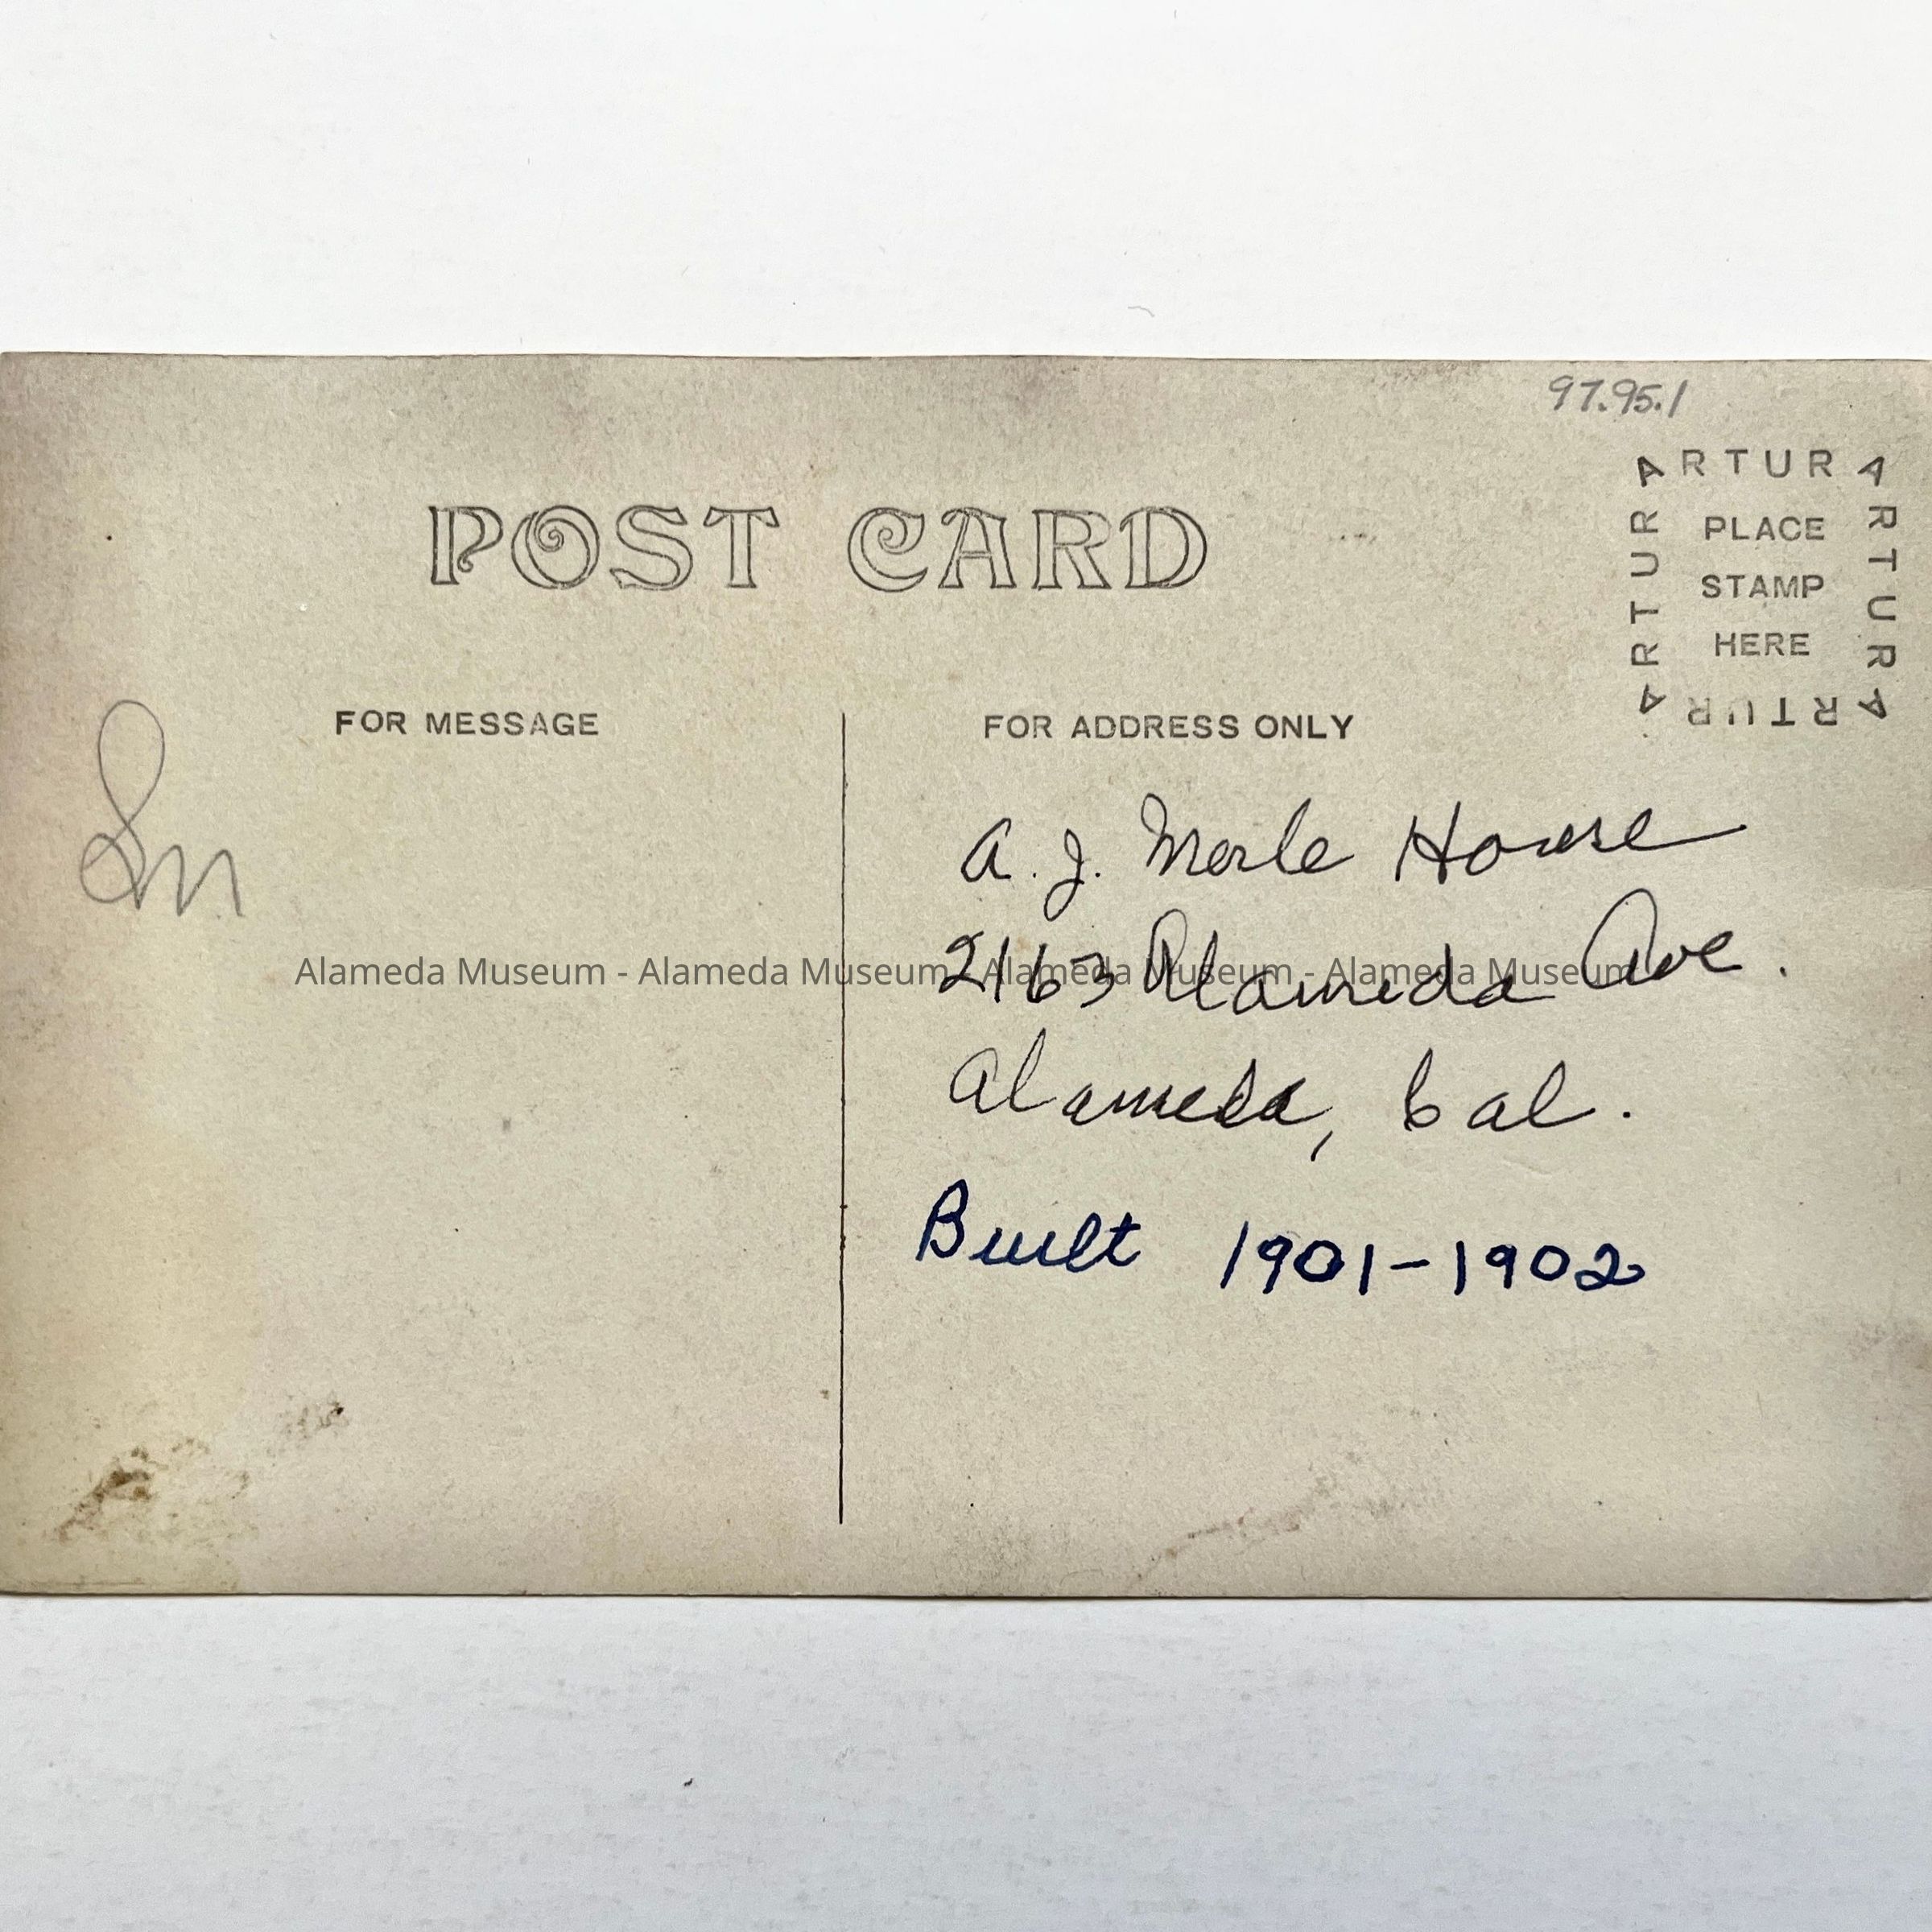 97.95.1
ARTURARTURARTURARTUR
PLACE
STAMP
HERE
POST CARD
FOR MESSAGE
FOR ADDRESS ONLY
A. J. Merle House
2163 Alameda Ave.
Alameda, Cal.
Built 1901-1902
Alameda Museum - Alameda Museum - Alameda Museum - Alameda Museum